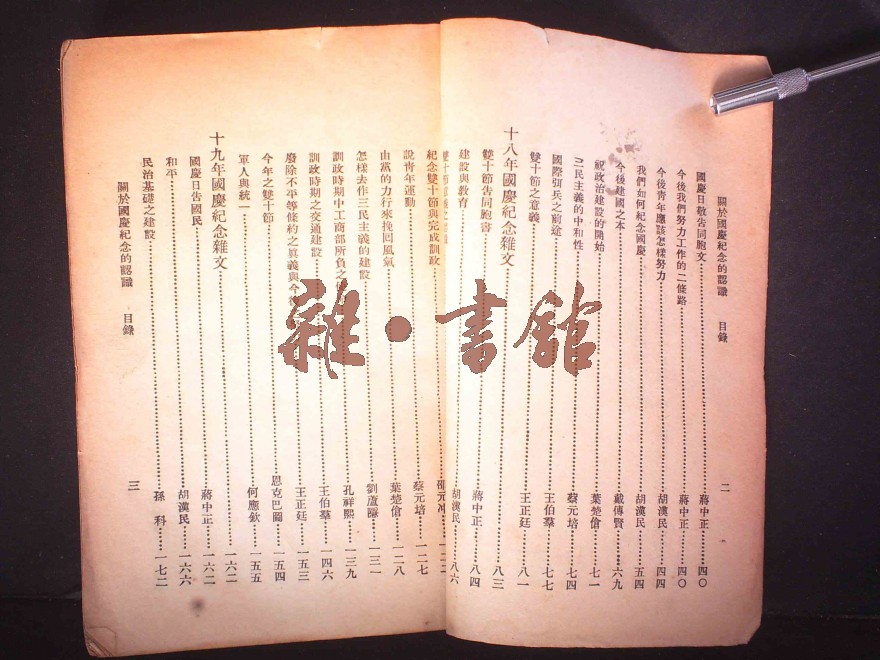 關於國慶紀念的認識 目錄 二
國慶日敬告同胞文 蔣中正 四〇
今後我們努力工作的二條路 蔣中正 四〇
今後青年應該怎樣努力 胡漢民 四四
我們如何紀念國慶 胡漢民 五四
今後建國之本 戴傳賢 六九
祝政治建設的開始 葉楚傖 七一
三民主義的中和性 蔡元培 七四
國際弭兵之前途 王伯羣 七七
雙十節之意義 王正廷 八一
十八年國慶紀念雜文 八三
雙十節告同胞書 蔣中正 八四
建設與教育 胡漢民 八六
紀念雙十節與完成訓政 邵元冲
說青年運動 蔡元培 一二七
由黨的力行來挽回風氣 葉楚傖 一二八
怎樣去作三民主義的建設 劉蘆隱 一三一
訓政時期中工商部所負之 孔祥熙 一三九
訓政時期之交通建設 王伯羣 一四六
廢除不平等條約之眞義與今後 王正廷 一五三
今年之雙十節 恩克巴圖 一五四
軍人與統一 何應欽 一五五
十九年國慶紀念雜文 一六二
國慶日告國民 蔣中正 一六二
和平 胡漢民 一六六
民治基礎之建設 孫科 一七二
關於國慶紀念的認識 目錄 三
雜·書館